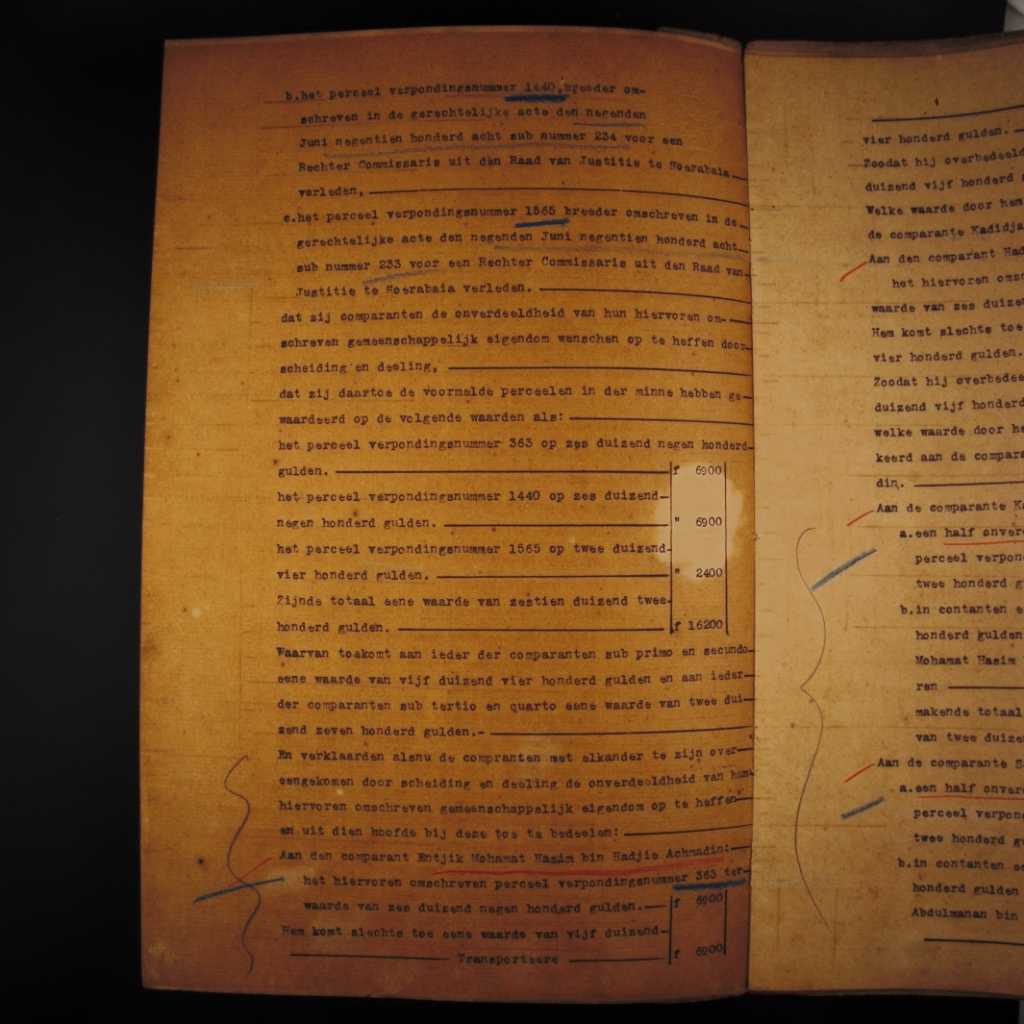 b.het perceel verpondingsnummer 1440, breeder om-
schreven in de gerechtelijke acte den negenden
Juni negentien honderd acht sub nummer 234 voor een
Rechter Commissaris uit den Raad van Justitie te Soerabaia
verleden,
c.het perceel verpondingsnummer 1565 breeder omschreven in de
gerechtelijke acte den negenden Juni negentien honderd acht
sub nummer 233 voor een Rechter Commissaris uit den Raad van
Justitie te Soerabaia verleden.
dat zij comparanten de onverdeeldheid van hun hiervoren om-
schreven gemeenschappelijk eigendom wenschen op te heffen door
scheiding en deeling,
dat zij daartoe de voormelde perceelen in der minne hebben ge-
waardeerd op de volgende waarden als:
het perceel verpondingsnummer 363 op zes duizend negen honderd
gulden. f 6900
het perceel verpondingsnummer 1440 op zes duizend
negen honderd gulden. " 6900
het perceel verpondingsnummer 1565 op twee duizend
vier honderd gulden. " 2400
Zijnde totaal eene waarde van zestien duizend twee
honderd gulden. f 16200
Waarvan toekomt aan ieder der comparanten sub primo en secundo
eene waarde van vijf duizend vier honderd gulden en aan ieder
der comparanten sub tertio en quarto eene waarde van twee dui-
zend zeven honderd gulden.-
En verklaarden alsnu de compranten met elkander te zijn over-
eengekomen door scheiding en deeling de onverdeeldheid van hun
hiervoren omschreven gemeenschappelijk eigendom op te heffen
en uit dien hoofde bij deze toe te bedeelen:
Aan den comparant Entjik Mohamat Hasim bin Hadjie Achmadin:
het hiervoren omschreven perceel verpondingsnummer 363 ter
waarde van zes duizend negen honderd gulden. f 6900
Hem komt slechts toe eene waarde van vijf duizend
Transporteere f 6900
vier honderd gulden.
Zoodat hij overbedeeld
duizend vijf honderd
Welke waarde door hem
de comparante Kadidja
Aan den comparant
het hiervoren
waarde van zes
Hem komt slechts toe
vier honderd gulden.
Zoodat hij
duizend vijf honderd
welke waarde door
keerd aan de
din.
Aan de comparante
a.een half
perceel
twee honderd
b.in contanten
honderd gulden
Mohamat Hasim
ren
makende totaal
van twee
Aan de comparante
a.een half
perceel
twee honderd
b.in contanten
honderd gulden
Abdulmanan bin